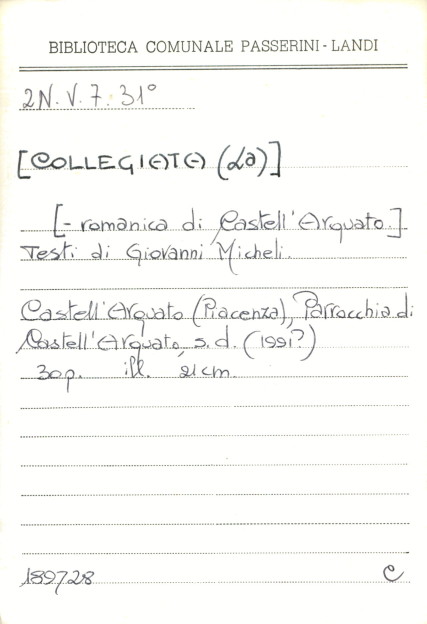 BIBLIOTECA COMUNALE PASSERINI-LANDI
2N. V. 7. 31°
[COLLEGIATA (La)]
[- romanica di Castell'Arquato.]
Testi di Giovanni Micheli.
Castell'Arquato (Piacenza), Parrocchia di
Castell'Arquato, s.d. (1991?)
30p. ill. 21cm
189728 C